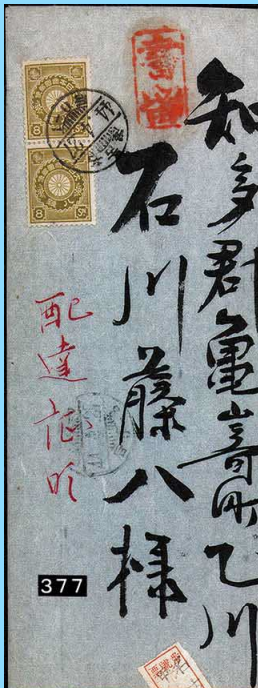 知多郡亀崎町乙川
石川藤八様
書留
配達証明
8 8
377